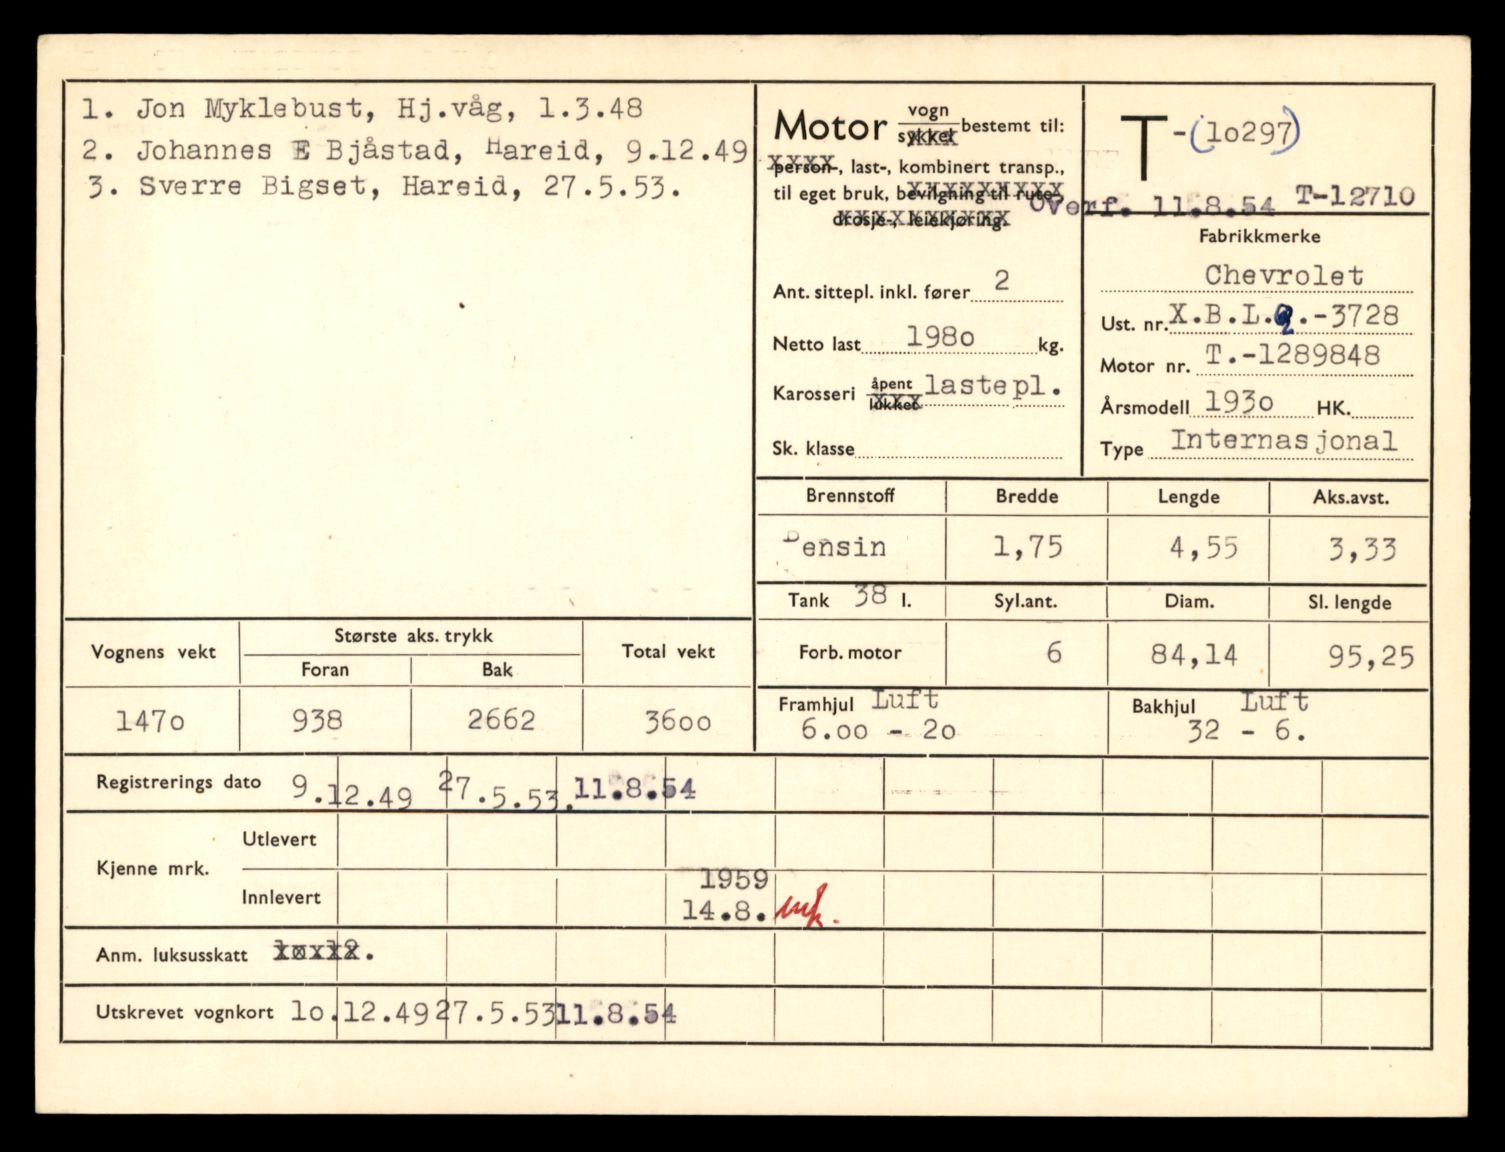 1. Jon Myklebust, Hj.våg, 1.3.48
2. Johannes E Bjåstad, Hareid, 9.12.49
3. Sverre Bigset, Hareid, 27.5.53.
Motor vogn sykkel bestemt til:
person-, last-, kombinert transp.,
til eget bruk, bevilgning til rute-,
drosje-, leiekjøring.
Ant. sittepl. inkl. fører 2
Netto last 198o kg.
Karosseri åpent lukket lastepl.
Sk. klasse
T-(1o297)
Overf. 11.8.54 T-12710
Fabrikkmerke
Chevrolet
Ust. nr. X.B.L.Q.-3728
Motor nr. T.-1289848
Årsmodell 193o HK.
Type Internasjonal
Brennstoff Bredde Lengde Aks.avst.
Bensin 1,75 4,55 3,33
Tank 38 l. Syl.ant. Diam. Sl. lengde
Forb. motor 6 84,14 95,25
Vognens vekt Største aks. trykk Total vekt
Foran Bak
147o 938 2662 36oo
Framhjul Luft Bakhjul Luft
6.oo - 2o 32 - 6.
Registrerings dato 9.12.49 27.5.53. 11.8.54
Kjenne mrk.
Utlevert
Innlevert 1959
14.8.
Anm. luksusskatt
Utskrevet vognkort 1o.12.49 27.5.53 11.8.54